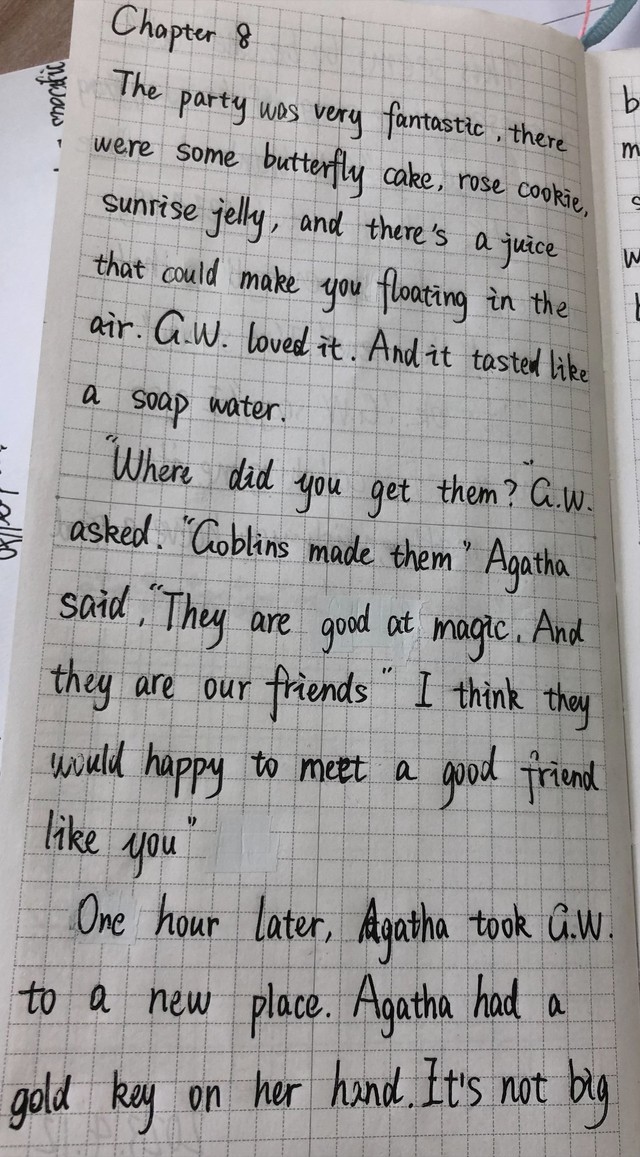 Chapter 8
The party was very fantastic, there
were some butterfly cake, rose cookie,
sunrise jelly, and there's a juice
that could make you floating in the
air. G.W. loved it. And it tasted like
a soap water.
"Where did you get them?" G.W.
asked. "Goblins made them" Agatha
said, "They are good at magic. And
they are our friends" I think they
would happy to meet a good friend
like you"
One hour later, Agatha took G.W.
to a new place. Agatha had a
gold key on her hand. It's not big